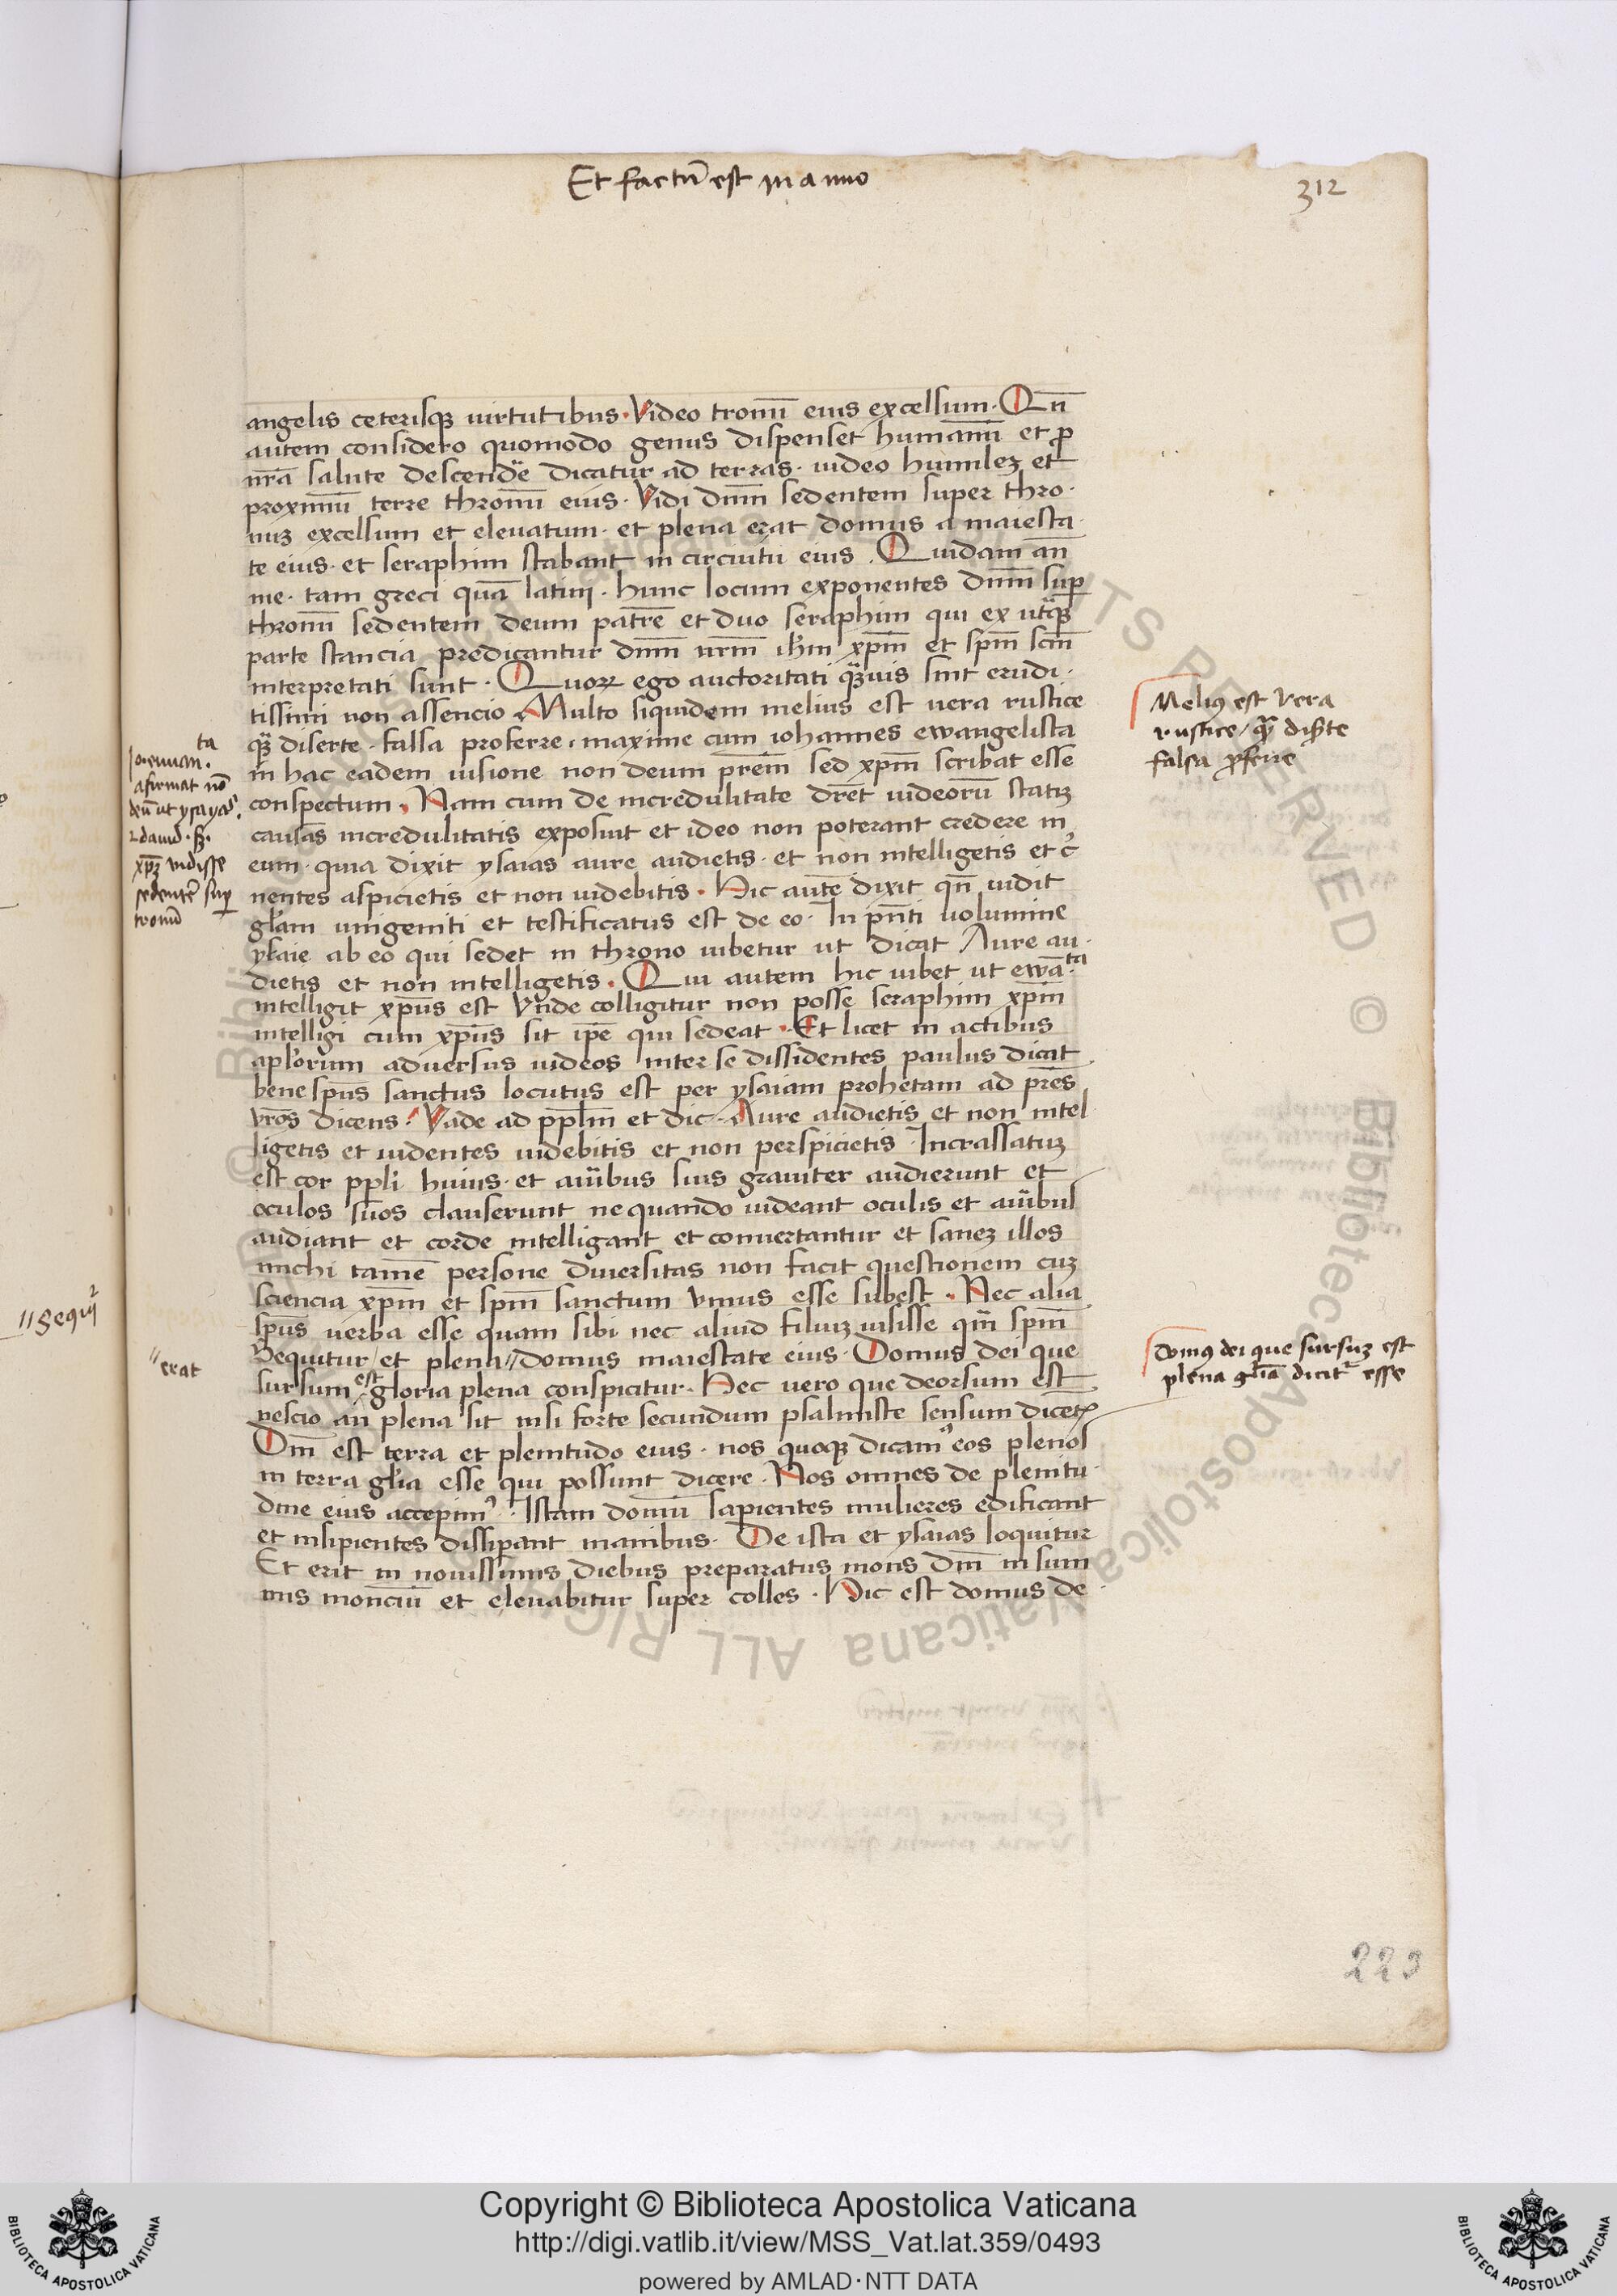 Et factū est in anno
312
angelis ceterisqꝫ uirtutibus. Video tronū eius excelsum. Qn̄
autem considero quomodo genus dispenset humanū et ꝓ
nr̄a salute descende᷑ dicatur ad terras. uideo humileꝫ et
proximū terre thronū eius. Vidi dn̄m sedentem super thro-
nuꝫ excelsum et eleuatum. et plena erat domus a maiesta-
te eius. et seraphim stabant in circuitu eius. Quidam an̄
me. tam greci quā latini. hunc locum exponentes dn̄m suꝑ
thronū sedentem deum patrē et duo seraphim qui ex utͣqꝫ
parte stancia predicantur dn̄m nr̄m ih̄m xp̄m et sp̄m sc̄m
interpretati sunt. Quoꝝ ego auctoritati qͣꝫuis sint erudi-
tissimi non assencio. Multo siquidem melius est uera rustice
qͣꝫ diserte. falsa proferre. maxime cum iohannes ewangelista
in hac eadem uisione non deum pr̄em sed xp̄m scribat esse
conspectum. Nam cum de incredulitate dr̄et iudeorū statiꝫ
causas incredulitatis exposuit et ideo non poterant credere in
eum. quia dixit ysaias aure audietis. et non intelligetis et c̉
nentes aspicietis et non uidebitis. Hic autē dixit qn̄ uidit
gl̄am unigeniti et testificatus est de eo. In pn̄ti uolumine
ysaie ab eo qui sedet in throno iubetur ut dicat Aure au-
dietis et non intelligetis. Qui autem hic iubet ut ewā.ᵗᵃ
intelligit xp̄us est Vnde colligitur non posse seraphim xp̄m
intelligi cum xp̄us sit ip̄e qui sedeat. Et licet in actibus
apl̄orum aduersus iudeos inter se dissidentes paulus dicat
bene sp̄us sanctus locutus est per ysaiam prohetam ad pr̄es
vr̄os dicens. Vade ad ppl̄m et dic. Aure audietis et non intel
ligetis et uidentes uidebitis et non perspicietis Incrassatuꝫ
est cor ppl̄i huius. et auͥbus suis grauiter audierunt et
oculos suos clauserunt nequando uideant oculis et auͥbus
audiant et corde intelligant et conuertantur et saneꝫ illos
michi tamē persone diuersitas non facit questionem cuꝫ
sciencia xp̄m et sp̄m sanctum vnius esse subest. Nec alia
sp̄us uerba esse quam sibi nec aliud filiuꝫ iusisse qm̄ sp̄m
Sequitur / et plena // domus maiestate eius. Domus dei que
sursum est gloria plena conspicitur. Hec uero que deorsum est
nescio an plena sit nisi forte secundum psalmiste sensum dicetꝰ
Dm̄ est terra et plenitudo eius. nos quoqꝫ dicamꝰ eos plenos
in terra gl̄ia esse qui possunt dicere. Nos omnes de plenitu-
dine eius accepimꝰ. Istam domū sapientes mulieres edificant
et insipientes dissipant manibus. De ista et ysaias loquitur
Et erit in nouissimis diebus preparatus mons dn̄i in sum
mis monciū et eleuabitur super colles. Hic est domus de
Jo. euuan.ᵗᵃ
afirmat nō
deū ut ysayas
⁊ dauid. sꝫ.
xp̄ꝫ uidisse
sedentē suꝑ
tronū
// Sequiᷣ
// erat
Meliꝰ est vera
rustice / qͣꝫ disͬte
falsa ꝓferre
Domꝰ dei que sursuꝫ est
plena gl̄ia dicitᷣ esse
223
© Biblioteca Apostolica Vaticana ALL RIGHTS RESERVED
Copyright © Biblioteca Apostolica Vaticana
http://digi.vatlib.it/view/MSS_Vat.lat.359/0493
powered by AMLAD·NTT DATA
BIBLIOTECA APOSTOLICA VATICANA
BIBLIOTECA APOSTOLICA VATICANA